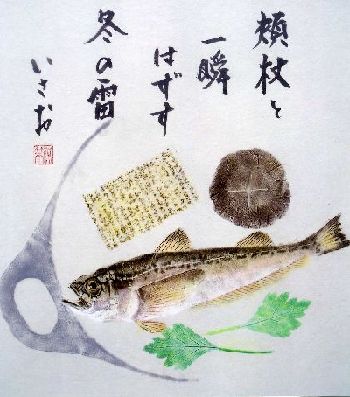 頬杖を
一瞬
はずす
冬の雷
いさお